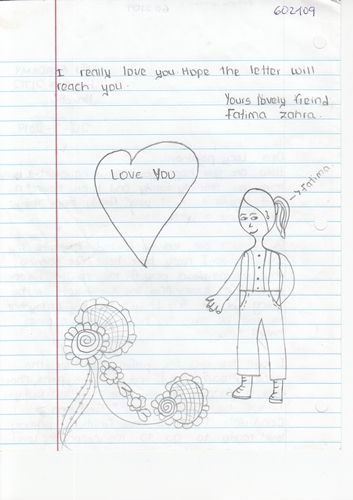 602109
I really love you. Hope the letter will
reach you.
Yours lovely freind
Fatima zahra.
LOVE YOU
Fatima